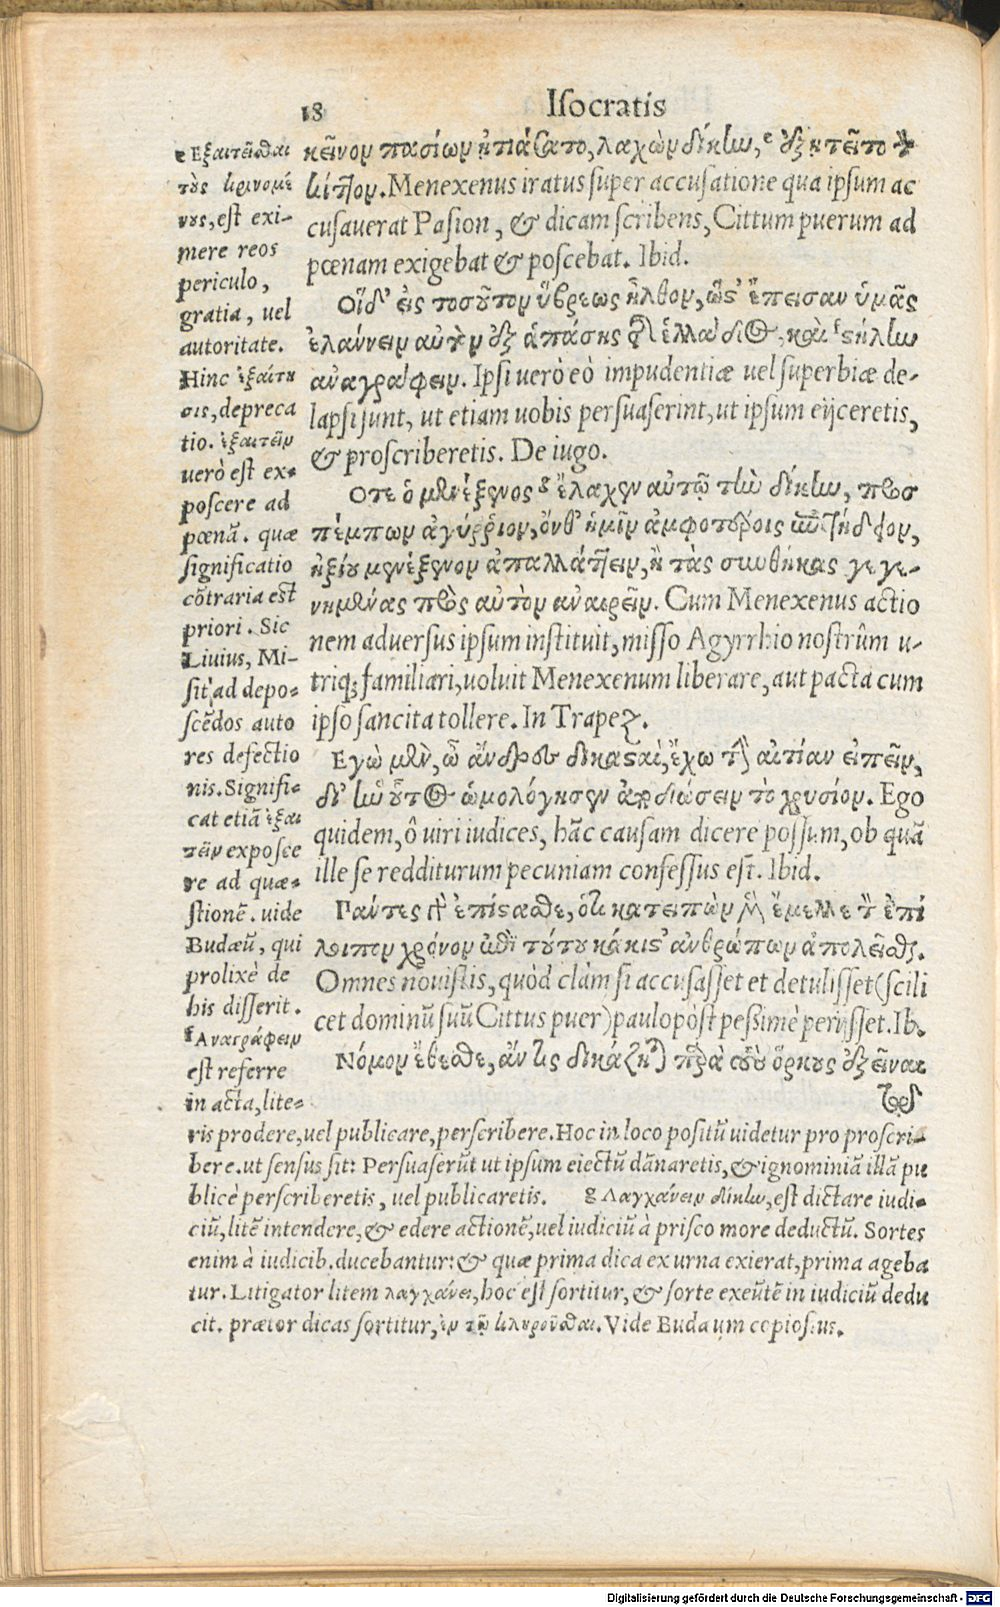 18 Isocratis
κεῖνον πασίων ᾐτιάσατο, λαχὼν δίκην, ᵉ ἐξῃτεῖτο τὸν
κίττον. Menexenus iratus super accusatione qua ipsum ac
cusauerat Pasion, & dicam scribens, Cittum puerum ad
pœnam exigebat & poscebat. Ibid.
Οἵδ' εἰς τοσοῦτον ὕβρεως ἦλθον, ὥστ' ἔπεισαν ὑμᾶς
ἐλαύνειν αὐτὸν ἐξ ἁπάσης τῆς ἑλλάδος, καὶ ᶠ στήλην
ἀναγράφειν. Ipsi verò eò impudentiæ uel superbiæ de-
lapsi sunt, ut etiam uobis persuaserint, ut ipsum eijceretis,
& proscriberetis. De iugo.
Οτε ὁ μενέξενος ᵍ ἔλαχεν αὐτῷ τὴν δίκην, προσ
πέμπων ἀγύρριον, ὄνθ' ἡμῖν ἀμφοτέροις ἐπιτήδειον,
ἠξίου μενέξενον ἀπαλλάττειν, ἢ τὰς συνθήκας γεγε-
νημένας πρὸς αὐτὸν ἀναιρεῖν. Cum Menexenus actio
nem aduersus ipsum instituit, misso Agyrrhio nostrûm u-
triq; familiari, uoluit Menexenum liberare, aut pacta cum
ipso sancita tollere. In Trapez.
Εγὼ μὲν, ὦ ἄνδρες δικασταὶ, ἔχω τὴν αἰτίαν εἰπεῖν,
δι' ἣν οὗτος ὡμολόγησεν ἀποδώσειν τὸ χρυσίον. Ego
quidem, ô uiri iudices, hãc causam dicere possum, ob quã
ille se redditurum pecuniam confessus est. Ibid.
Πάντες γὰρ ἐπίστασθε, ὅτι κατειπὼν μὲν ἔμελλε τὸν ἐπί
λοιπον χρόνον ὑπὸ τούτου κάκιστ' ἀνθρώπων ἀπολεῖσθαι.
Omnes nouistis, quòd clàm si accusasset et detulisset (scili
cet dominũ suũ Cittus puer) paulo pòst pessimè perijsset. Ib.
Νόμον ἔθεσθε, ἄν τις δικάζηται παρὰ τοὺς ὅρκους ἐξεῖναι
τῷ
e Εξαιτεῖσθαι
τοὺς κρινομέ
νους, est exi-
mere reos
periculo,
gratia, uel
autoritate.
Hinc ἐξαίτη
σις, depreca
tio. ἐξαιτεῖν
uerò est ex-
poscere ad
pœnã. quæ
significatio
cõtraria est
priori. Sic
Liuius, Mi-
sit ad depo-
scẽdos auto
res defectio
nis. Signifi-
cat etiã ἐξαι
τεῖν exposce
re ad quæ-
stionẽ. uide
Budæũ, qui
prolixè de
his disserit.
f Αναγράφειν
est referre
in acta, lite-
ris prodere, uel publicare, perscribere. Hoc in loco positũ uidetur pro proscri-
bere. ut sensus sit: Persuaserũt ut ipsum eiectũ dãnaretis, & ignominiã illã pu
blicè perscriberetis, uel publicaretis. g Λαγχάνειν δίκην, est dictare iudi-
ciũ, litẽ intendere, & edere actionẽ, uel iudiciũ à prisco more deductũ. Sortes
enim à iudicib. ducebantur: & quæ prima dica ex urna exierat, prima ageba
tur. Litigator litem λαγχάνει, hoc est sortitur, & sorte exeũtẽ in iudiciũ dedu
cit. prætor dicas sortitur, ἐν τῷ κληροῦσθαι. Vide Budæum copiosius.
Digitalisierung gefördert durch die Deutsche Forschungsgemeinschaft - DFG